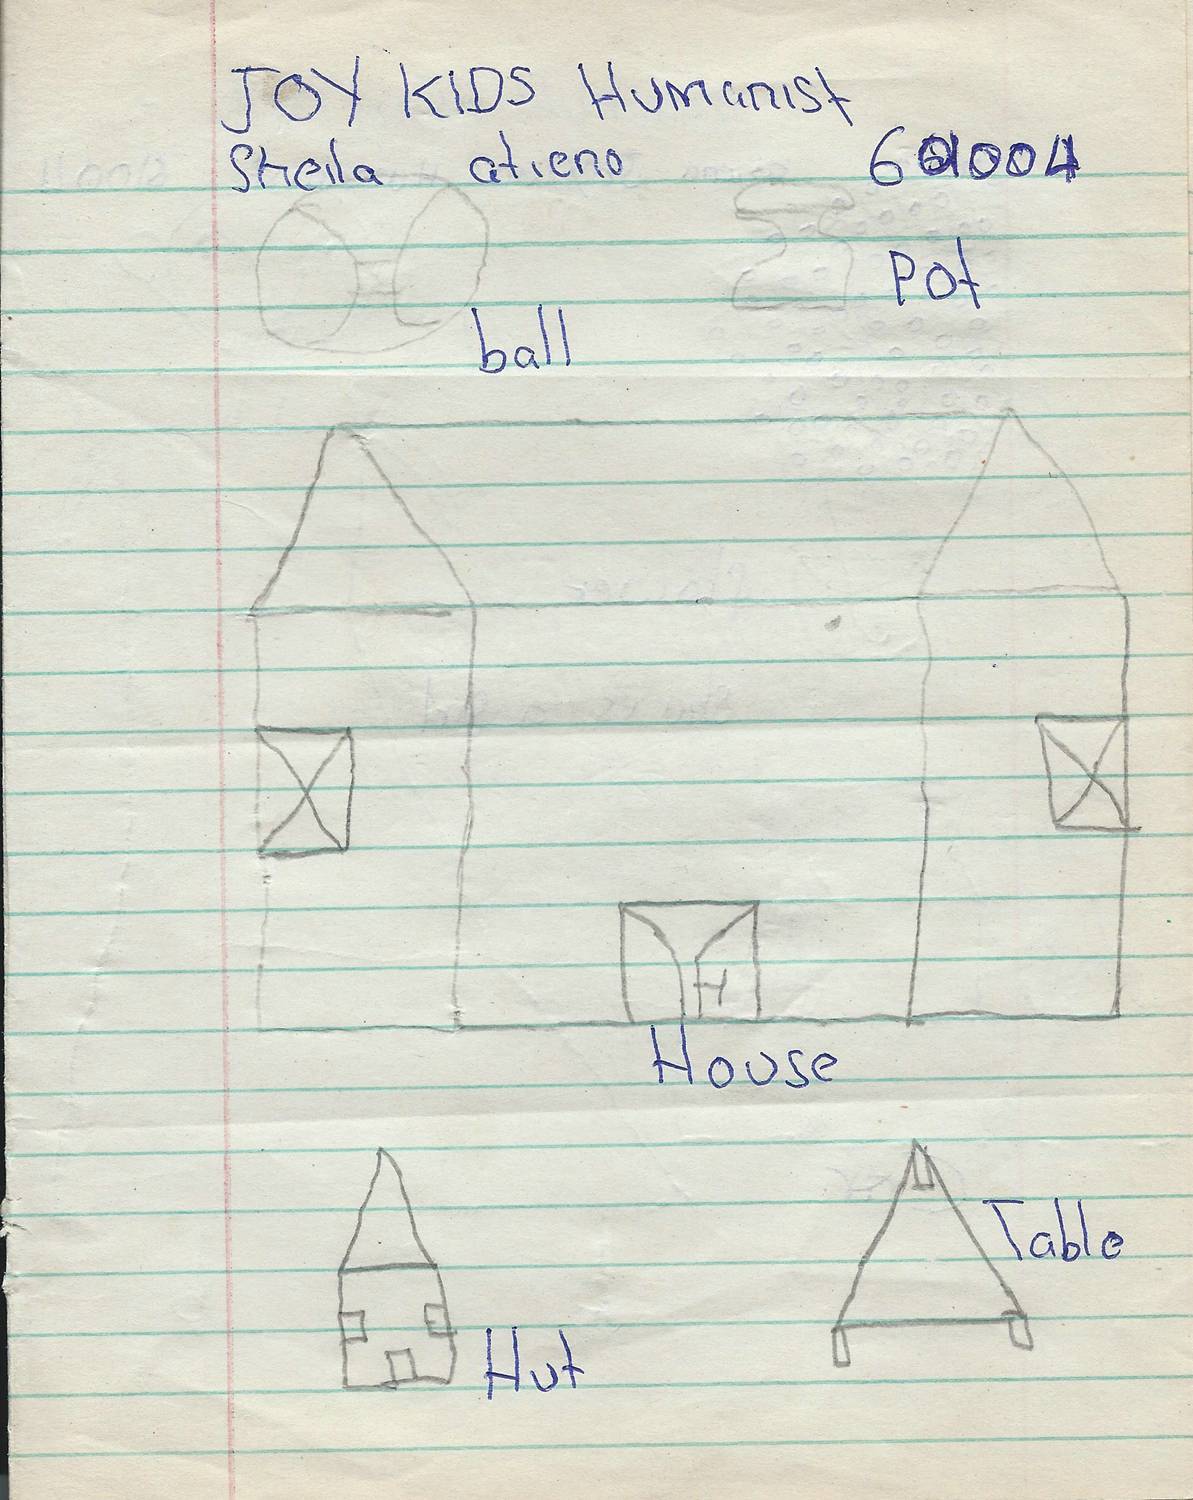 JOY KIDS Humanist
Sheila atieno
Pot
ball
H
House
Table
Hut